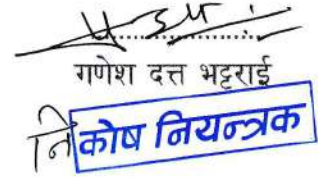 गणेश दत्त भट्टराई
नि कोष नियन्त्रक